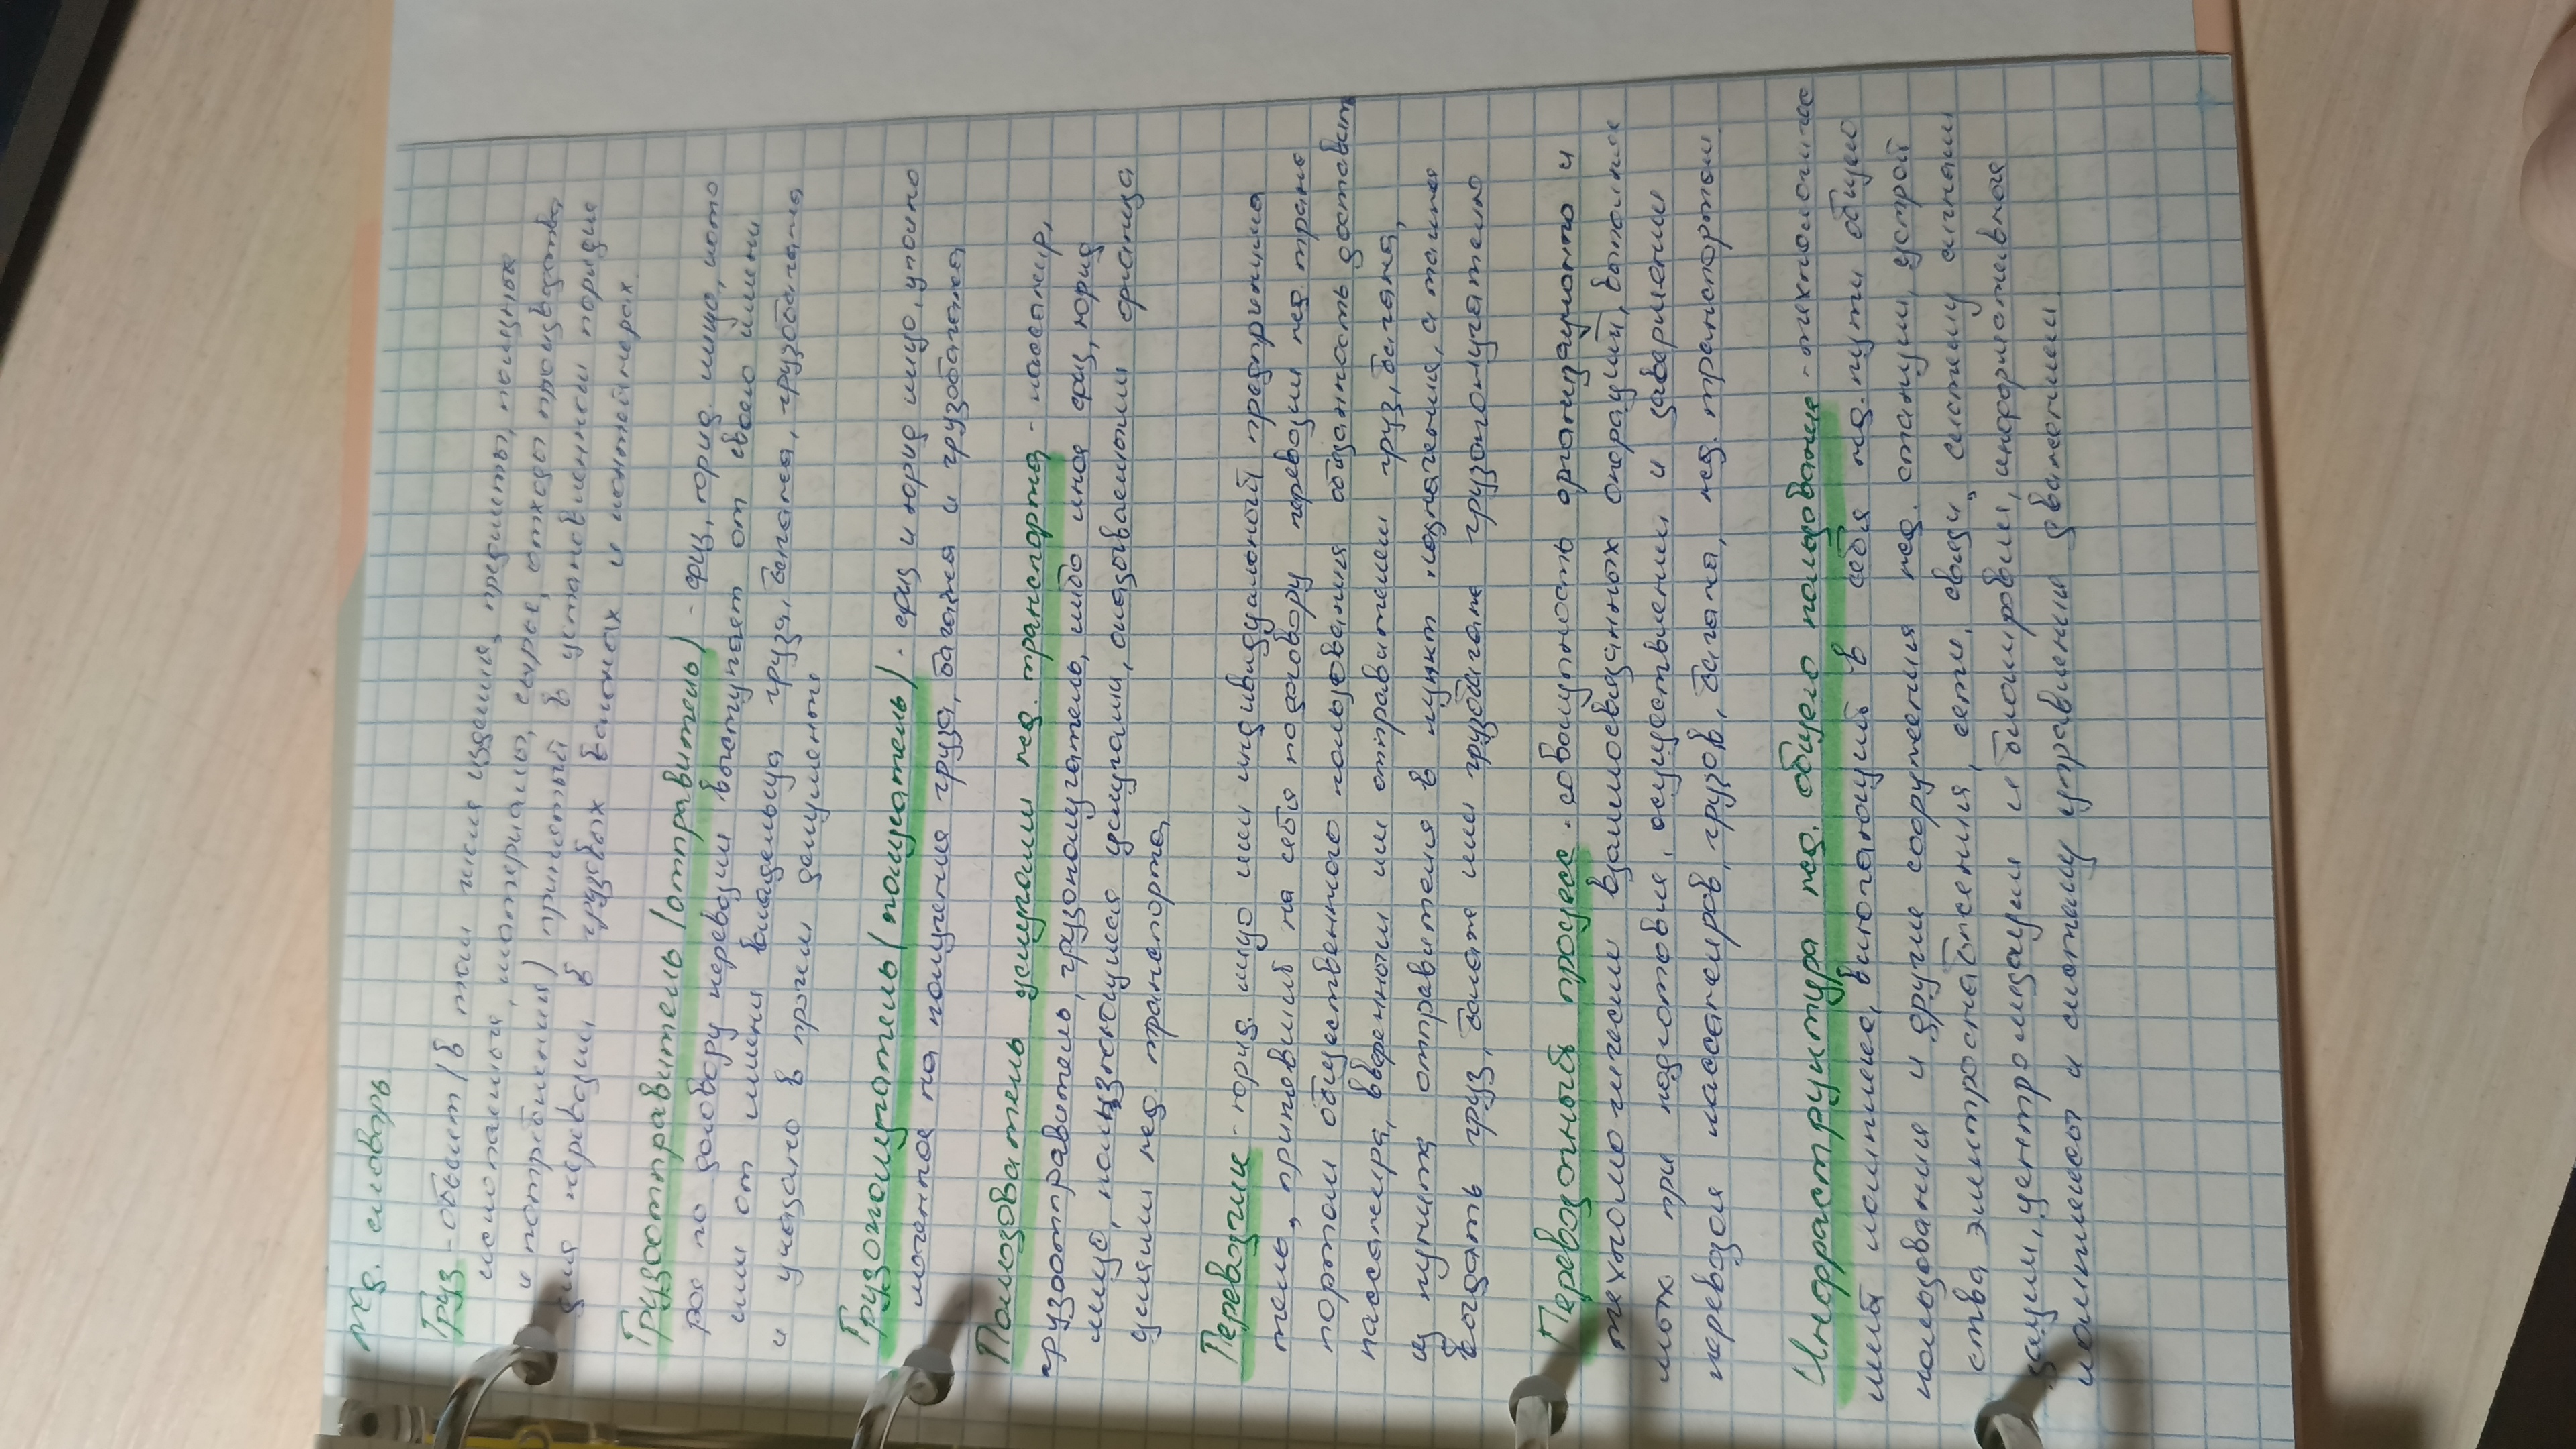 жд. словарь
Груз - объект (в том числе изделия, предметы, полезные
ископаемые, материалы, сырье, отходы производства
и потребления) принятый в установленном порядке
для перевозки в грузовых вагонах и контейнерах
Грузоотправитель (отправитель) - физ, юрид. лицо, кото
рое по договору перевозки выступает от своего имени
или от имени владельца груза, багажа, грузобагажа
и указано в прочем документе
Грузополучатель (получатель) - физ и юрид лицо, уполно
моченное на получение груза, багажа и грузобагажа
Пользователь услугами жд. транспорта - пассажир,
грузоотправитель, грузополучатель, либо иное физ, юрид
лицо, пользующиеся услугами, оказываемыми
жд транспорта
Перевозчик - юрид. лицо или индивидуальный предприним
тель, принявший на себя по договору перевозки жд. транс
портом общественного пользования обязанность доставить
пассажира, вверенный им отправителем груз, багаж,
из пункта отправителя в пункт назначения, а также
выдать груз, багаж или грузобагаж грузополучателю
Перевозочный процесс - совокупность организационно и
технологически взаимосвязанных операций, выполня
мых при подготовке, осуществлении и завершении
перевозок пассажиров, грузов, багажа, жд. транспортом
Инфраструктура жд. общего пользование - технологичес
кий комплекс, включающий в себя жд. пути общего
пользования и другие сооружения жд. станции, устрой
ства электроснабжения, сети, связи, систему сигнали
зации, централизации и блокировки, информационная
комплексы и систему управления движением